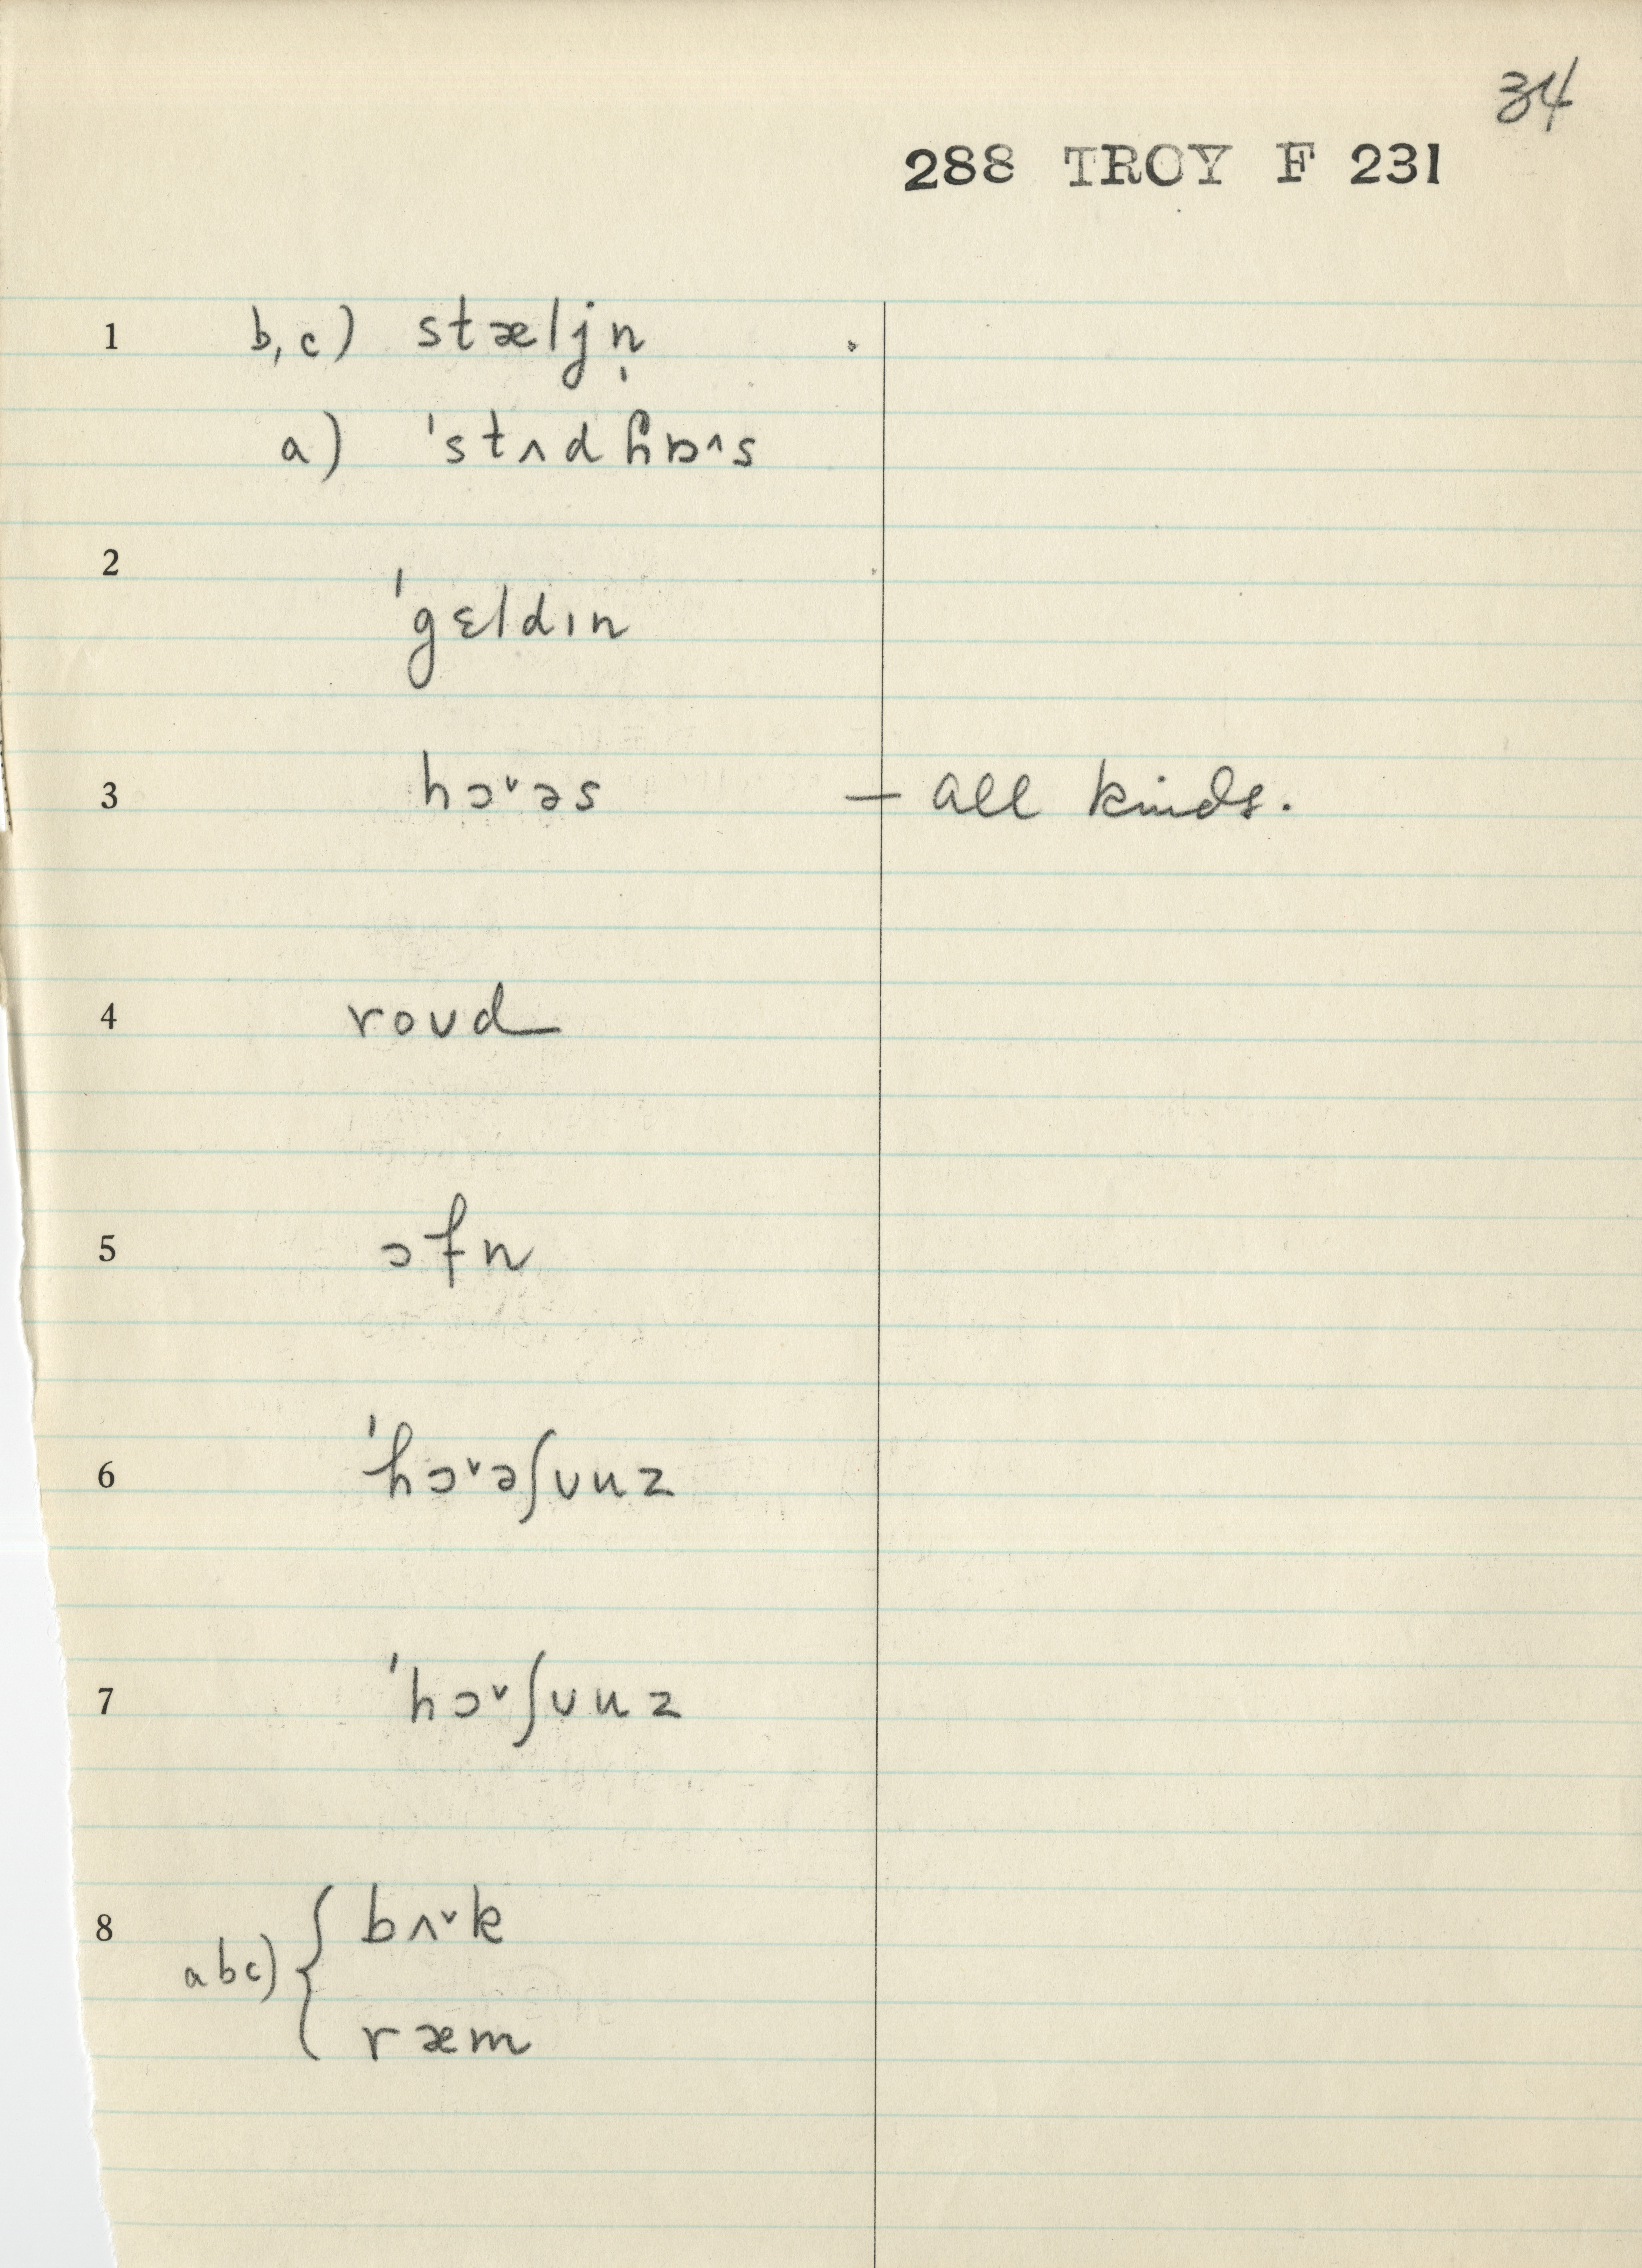 34
288 TROY F 231
1 b,c) stæljn̩
a) ˈstʌdɦɒ^s
2
ˈgɛldɪn
3 hɔ˅əs — all kinds.
4 roʊd
5 ɔfn
6 ˈhɔ˅əʃʊuz
7 ˈhɔ˅ʃʊuz
8 bʌ˅k
abc) {
ræm